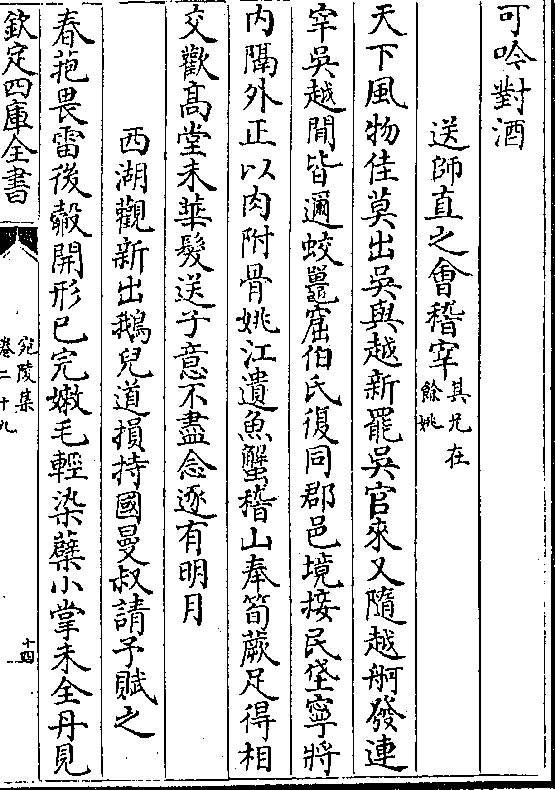 可吟對酒
送師直之會稽宰其兄在餘姚
天下風物佳莫出吳與越新罷吳官來又隨越舸發連
宰吳越間皆邇蛟鼉窟伯氏復同郡邑境接民垡寧將
內隔外正以肉附骨姚江遺魚蟹稽山奉筍蕨足得相
交歡高堂未華髮送子意不盡念逐有明月
西湖觀新出鵝兒道損持國曼叔請予賦之
春葩畏雷後鷇開形已完嫩毛輕染蘗小掌未全丹見
欽定四庫全書
宛陵集
卷二十九
十四